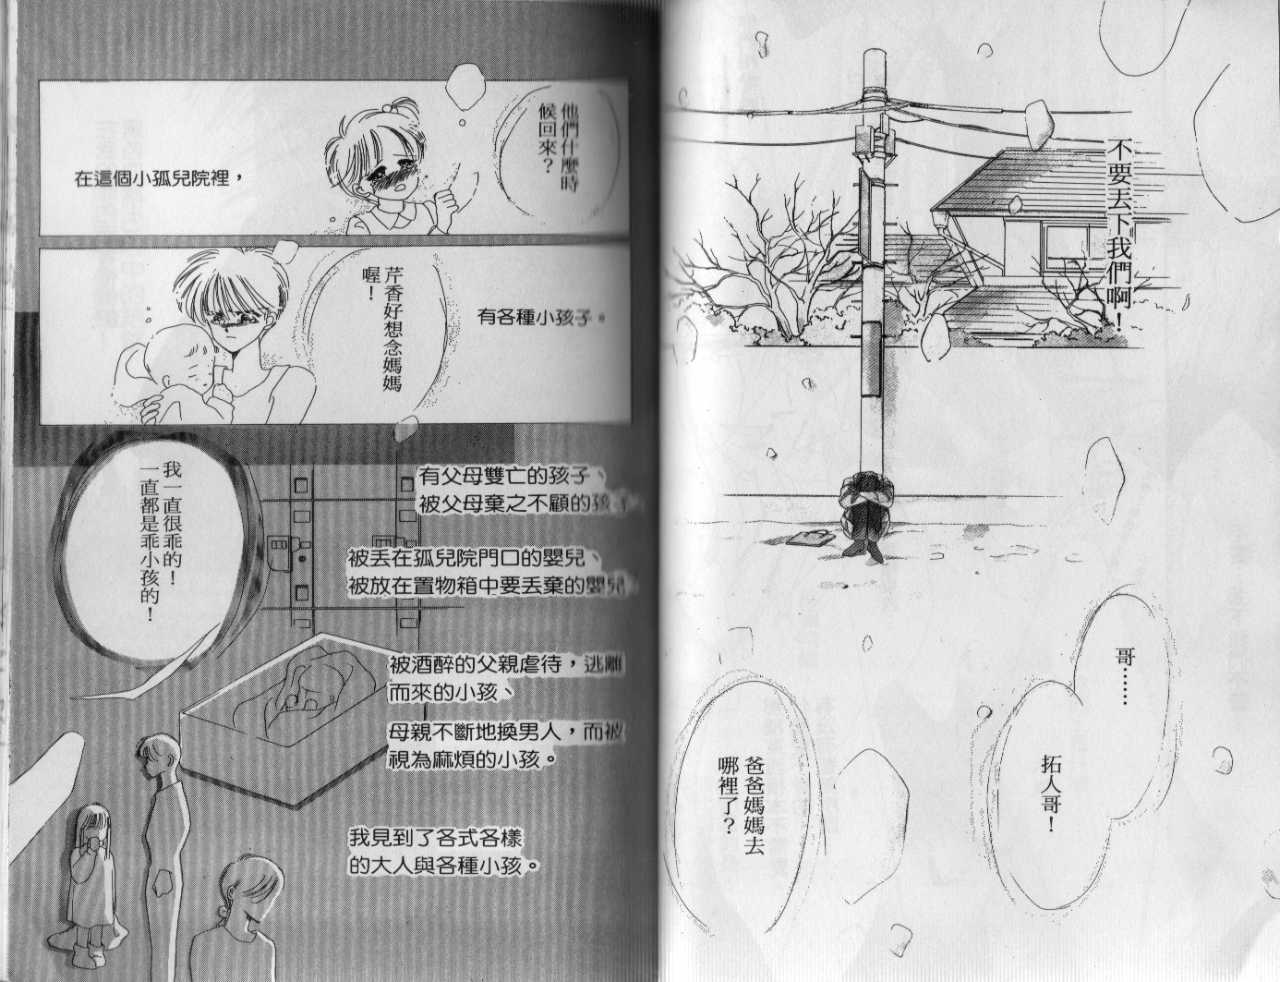 不要丟下我們啊！
哥……
拓人哥！
爸爸媽媽去
哪裡了？
他們什麼時
候回來？
在這個小孤兒院裡，
有各種小孩子。
芹香好想念媽媽
喔！
有父母雙亡的孩子、
被父母棄之不顧的孩子、
被丟在孤兒院門口的嬰兒、
被放在置物箱中要丟棄的嬰兒、
我一直很乖的！
一直都是乖小孩的！
被酒醉的父親虐待，逃離
而來的小孩、
母親不斷地換男人，而被
視為麻煩的小孩。
我見到了各式各樣
的大人與各種小孩。